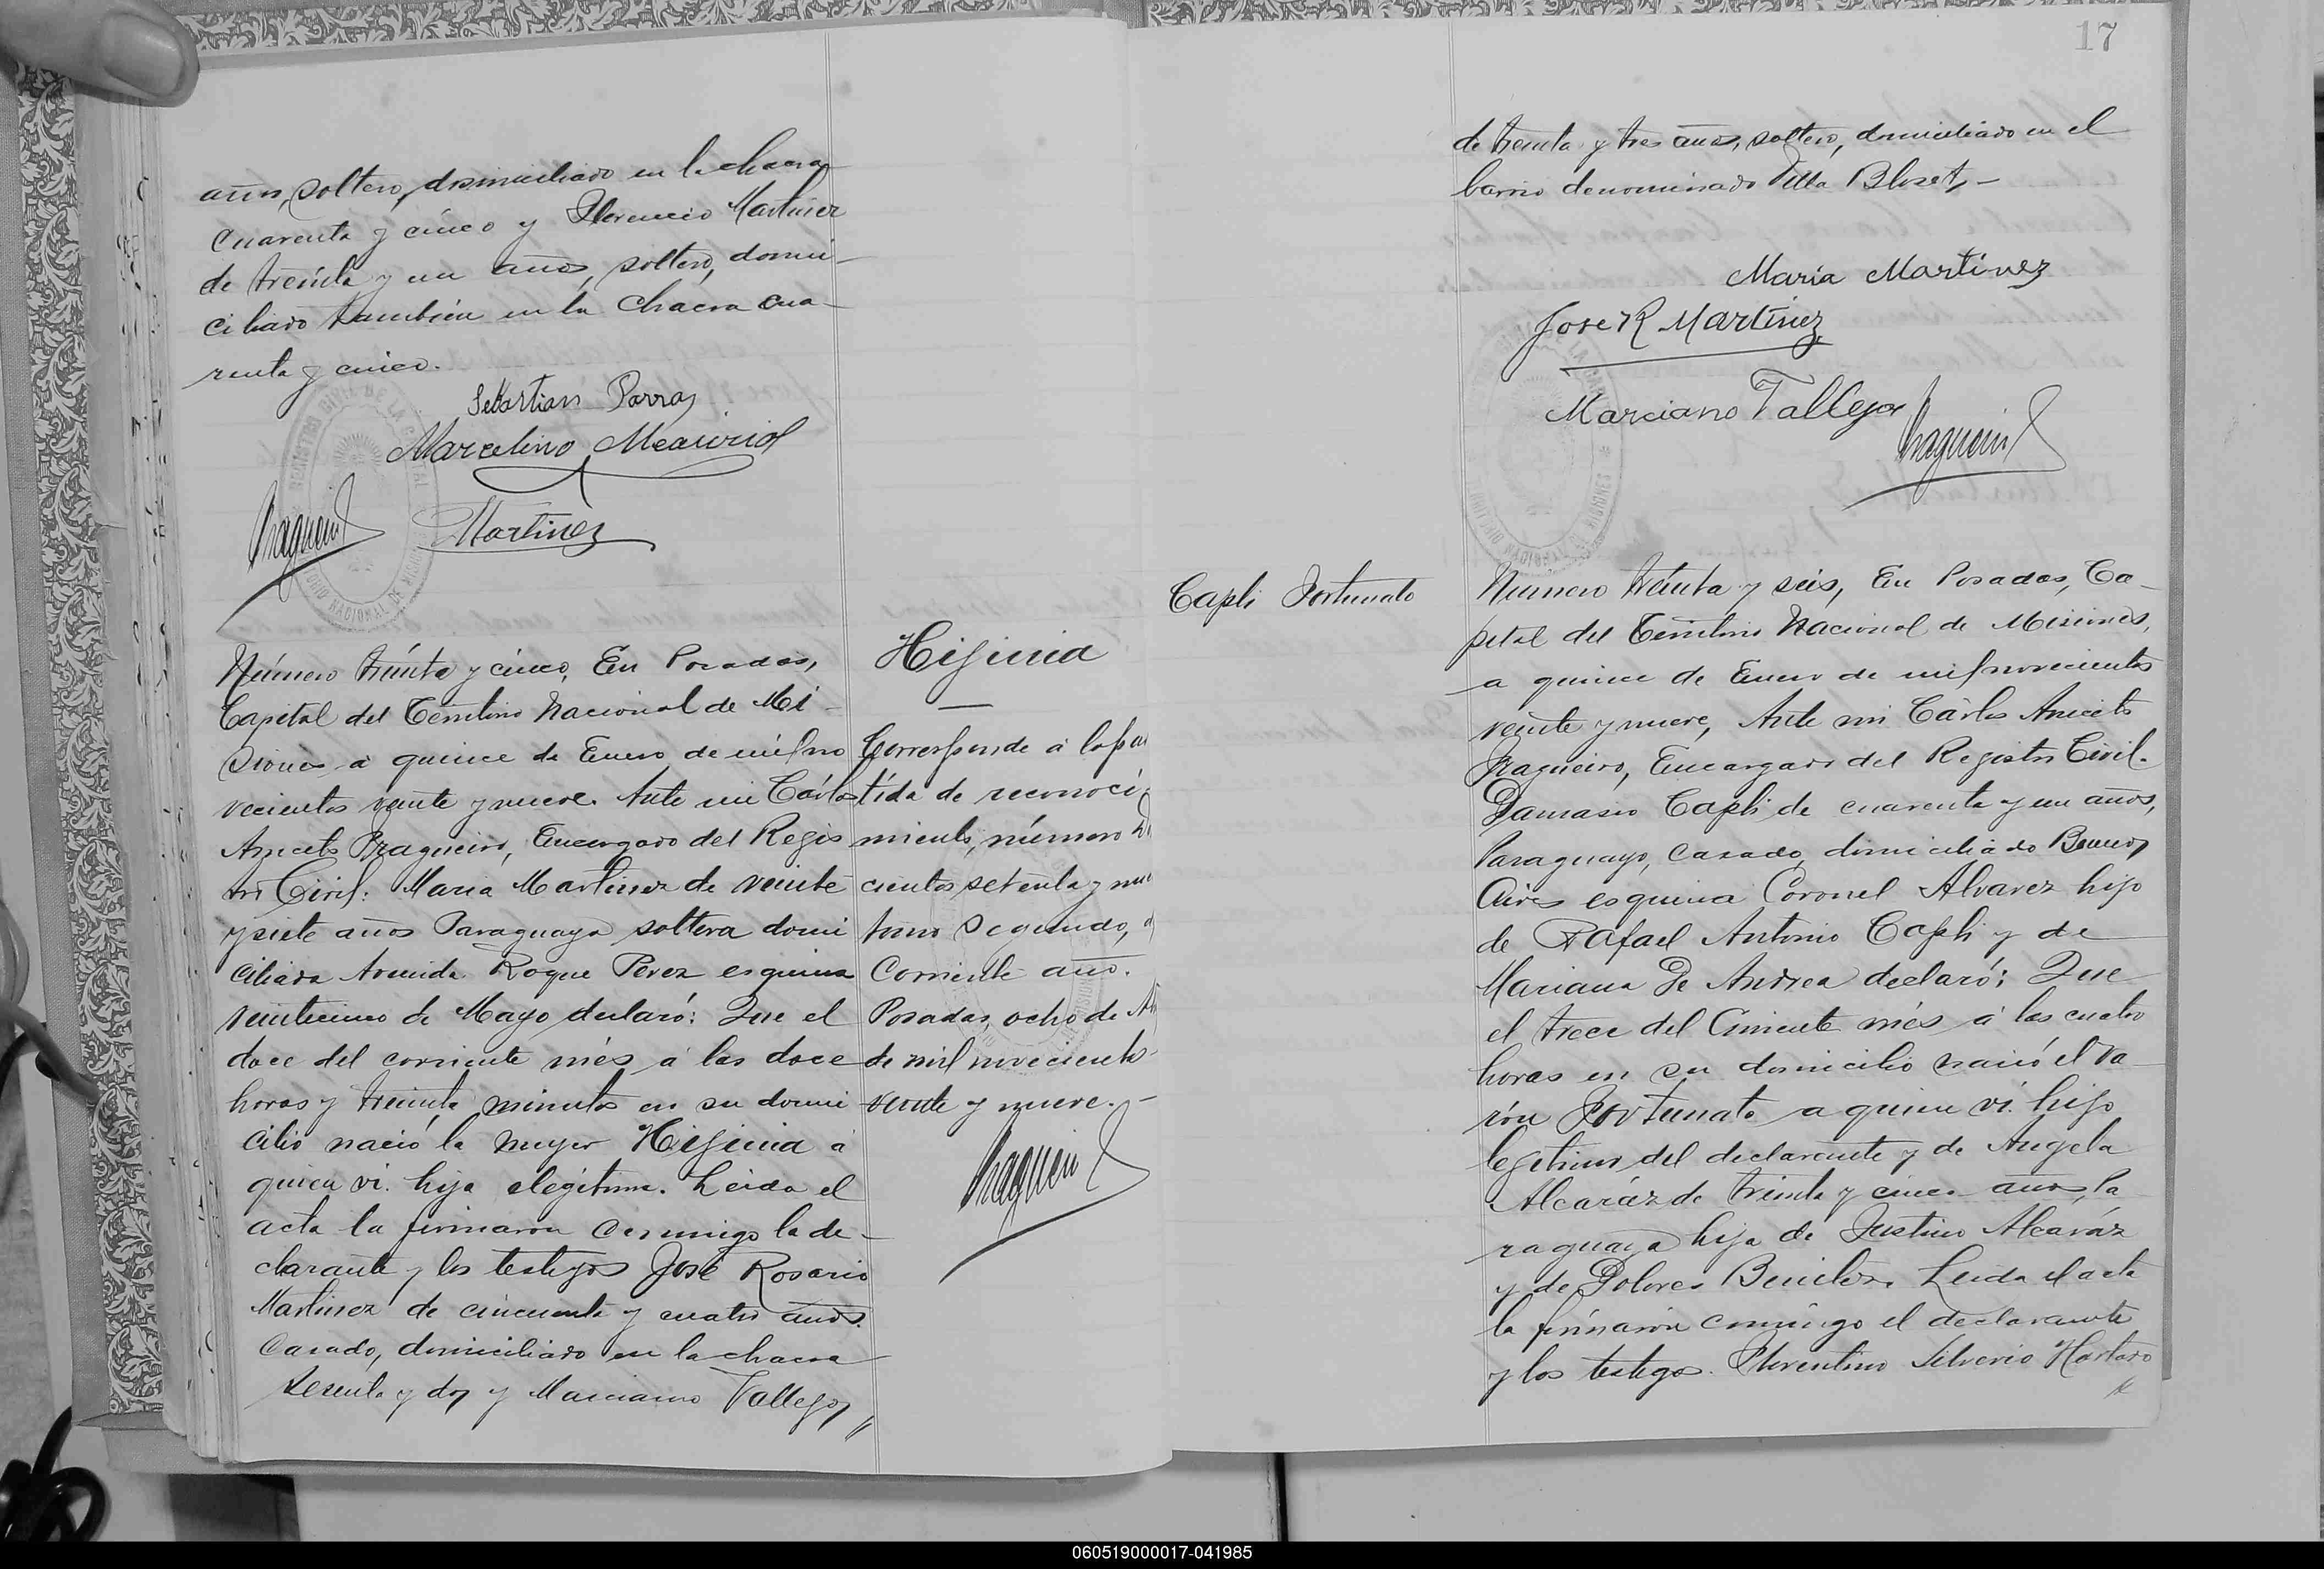 años, soltero, domiciliado en la chacra
cuarenta y cinco y Florencio Martinez
de treinta y un años, soltero, domi-
ciliado tambien en la chacra cua-
renta y cinco.
Sebastian Parra
Marcelino
Martinez
Número treinta y cinco, En Posadas,
Capital del Territorio Nacional de Mi-
siones a quince de Enero de mil no
vecientos veinte y nueve. Ante mi Cárlos
Aniceto Fragueiro, Encargado del Regis
tro Civil: Maria Martinez de veinte
y siete años Paraguaya soltera domi
ciliada Avenida Roque Perez esquina
veinticinco de Mayo declaró: Que el
doce del corriente més á las doce
horas y treinta minutos en su domi
cilio nació la mujer Hijinia á
quien vi. hija ilegitima. Leida el
acta la firmaron conmigo la de-
clarante y los testigos José Rosario
Martinez de cincuenta y cuatro años.
Casado, domiciliado en la chacra
sesenta y dos y Marciano Vallejos
Hijinia
Corresponde á la par
tida de reconoci
miento, número
cientos setenta y nue
tomo segundo,
Corriente año.
Posadas, ocho de
de mil novecientos
veinte y nueve.-
17
de treinta y tres años, soltero, domiciliado en el
barrio denominado Villa Bloset,-
Maria Martinez
Jose R Martinez
Marciano Vallejos
Capli Fortunato
Número treinta y seis, En Posadas, Ca-
pital del Territorio Nacional de Misiones,
a quince de Enero de mil novecientos
veinte y nueve, Ante mi Cárlos Aniceto
Fragueiro, Encargado del Registro Civil.
Damasio Capli de cuarenta y un años,
Paraguayo, casado, domiciliado Buenos
Aires esquina Coronel Alvarez hijo
de Rafael Antonio Capli y de
Mariana De Andrea declaró: Que
el trece del Corriente més á las cuatro
horas en su domicilio nació el va-
rón Fortunato a quien vi. hijo
legitimo del declarante y de Angela
Alcaráz de treinta y cinco años, Pa-
raguaya hija de Justino Alcaráz
y de Dolores Benitez. Leida el acta
la firmaron conmigo el declarante
y los testigos. Florentino Silverio Hurtado
060519000017-041985